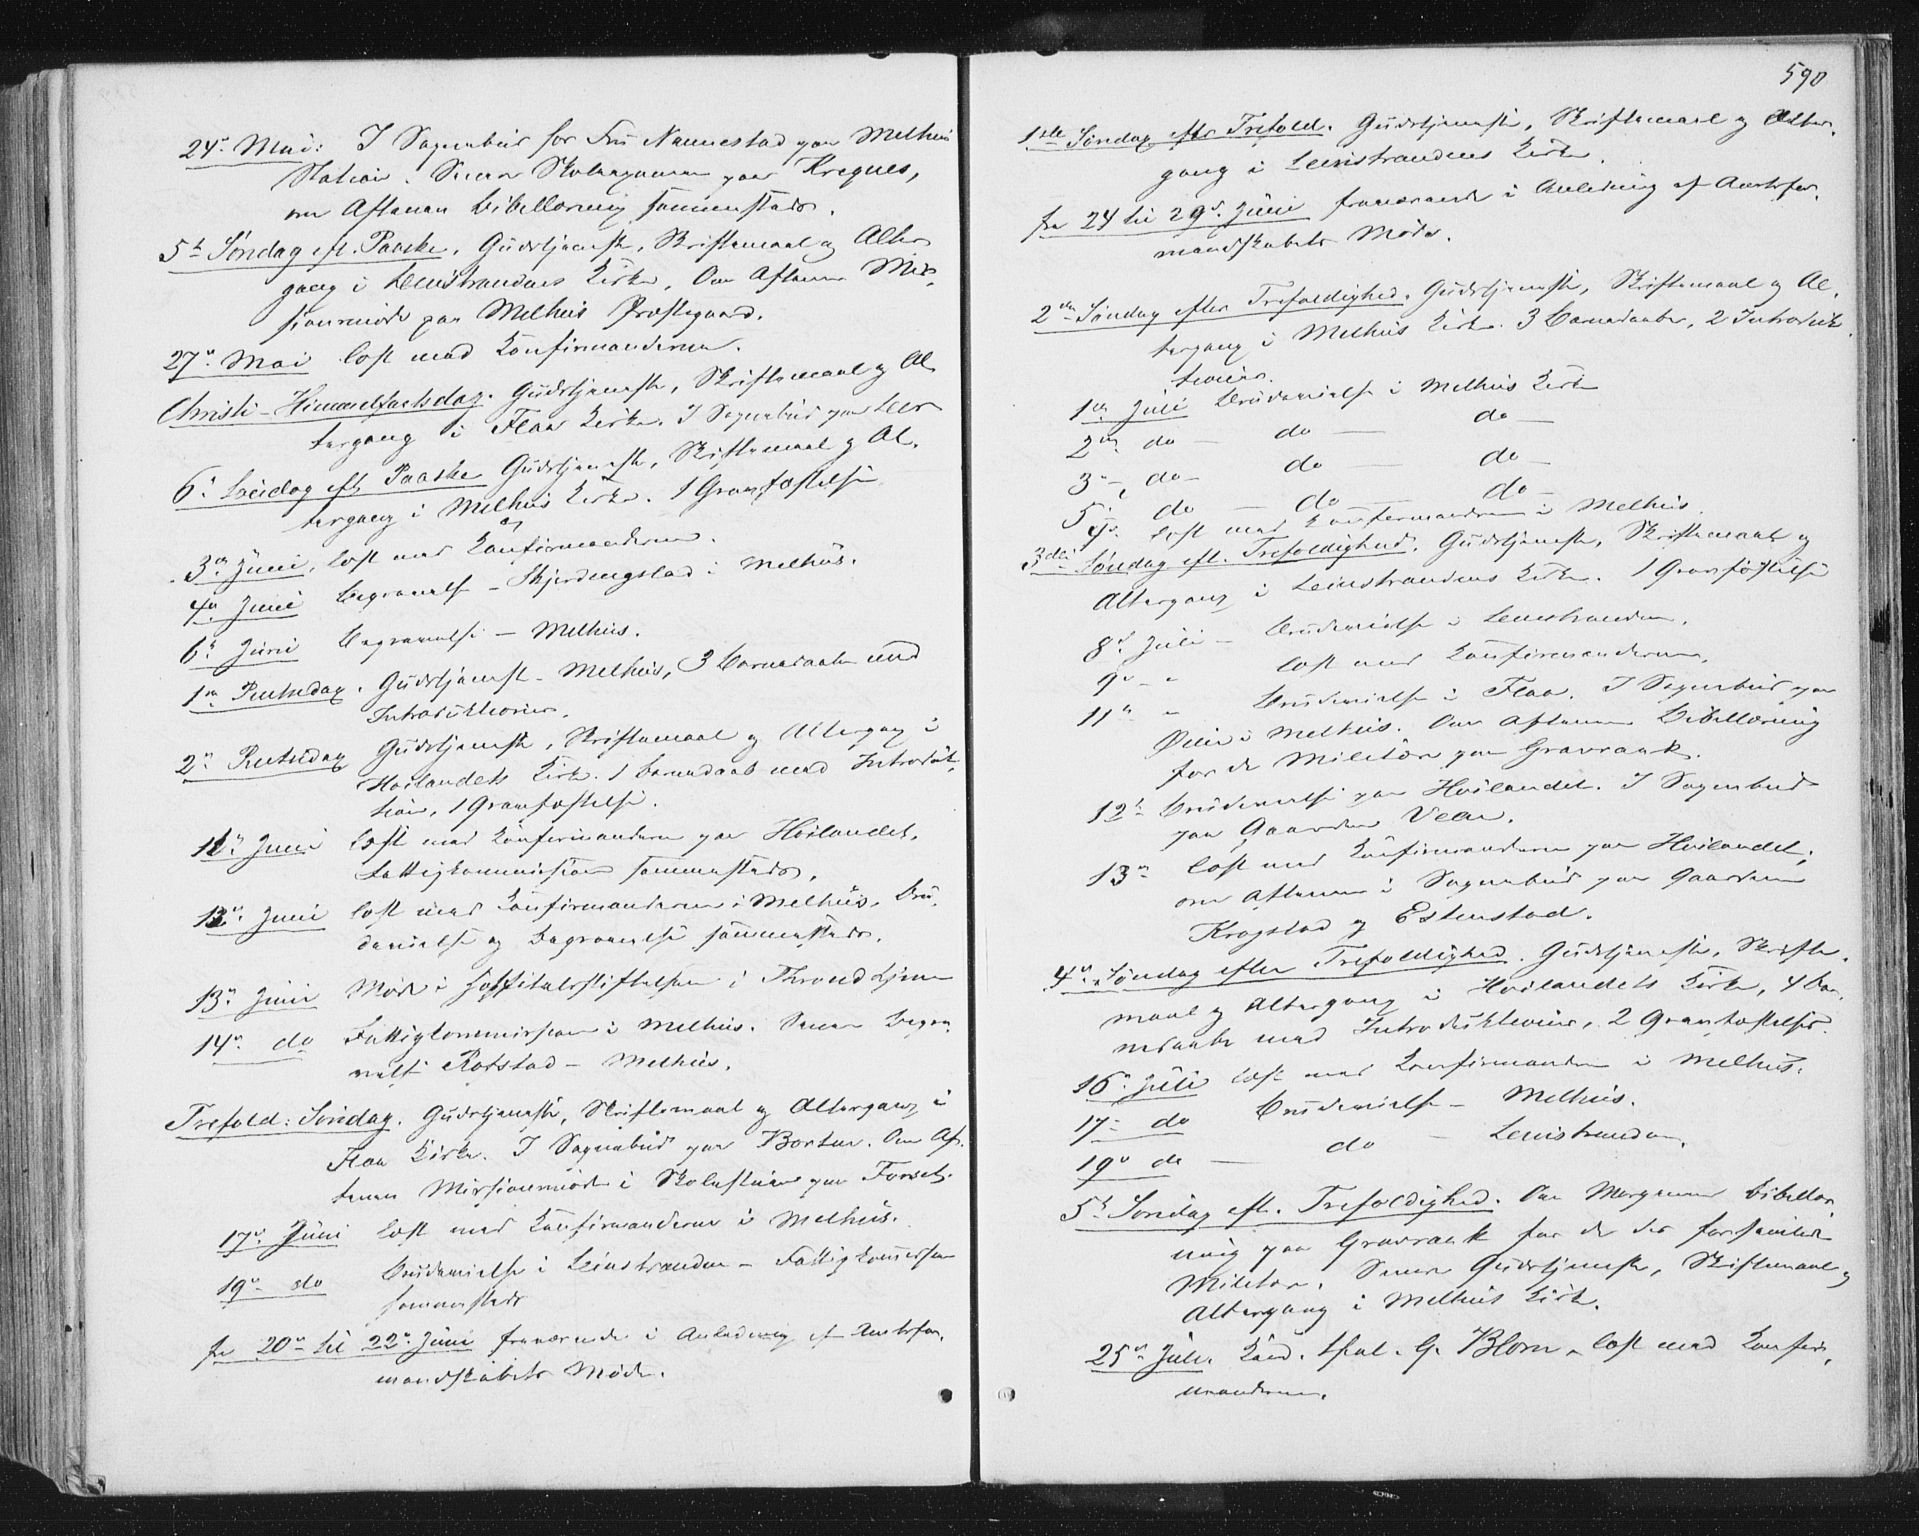 24de Mai: I Sognebud for Fru Nannestad paa Melhus
Station. Senere Skoleexamen paa Kregnes,
om Aftenen Bibellæsning sammesteds.
5te Søndag eft. Paaske. Gudstjeneste, Skriftemaal og Alter
gang i Leinstrandens Kirke. Om Aftenen Mis-
sionsmøde paa Melhus Præstegaard.
27de Mai læst med Konfirmanderne.
Christi-Himmelfartsdag. Gudstjeneste, Skriftemaal og Al-
tergang i Flaa Kirke. I Sognebud paa Leer
6te Søndag eft. Paaske Gudstjeneste, Skriftemaal og Al-
tergang i Melhus Kirke. 1 Gravfæstelse
3de Juni, læst med Konfirmanderne.
4de Juni Begravelse - Skjerdingstad i Melhus.
6te Juni Begravelse - Melhus.
1ste Pintsedag. Gudstjeneste - Melhus, 3 Barnedaabe med
Introduktioner.
2den Pintsedag Gudstjeneste, Skriftemaal og Altergang i
Høilandets Kirke. 1 Barnedaab med Introduk-
tion, 1 Gravfæstelse.
11te Juni læst med Konfirmanderne paa Høilandet.
Fattigkommission sammesteds.
12te Juni læst med Konfirmanderne i Melhus. Bru-
devielse og Begravelse sammesteds.
13de Juni Møde i Hospitalsstiftelsen i Throndhjem
14de do Fattigkommission i Melhus. Senere Begra-
velse Rotstad - Melhus.
Trefold: Søndag. Gudstjeneste, Skriftemaal og Altergang i
Flaa Kirke. I Sognebud paa Borten. Om Af-
tenen Missionsmøde i Skolestuen paa Forset.
17de Juni læst med Konfirmanderne i Melhus.
19de do Brudevielse i Leinstranden - Fattigkommission
sammesteds
fra 20de til 22de Juni fraværende i Anledning af Amtsfor-
mandskabets Møde.
590
1ste Søndag efter Trefold. Gudstjeneste, Skriftemaal og Alter-
gang i Leinstrandens Kirke.
fra 24 til 29de Juni fraværende i Anledning af Amtsfor-
mandskabets Møde.
2den Søndag efter Trefoldighed. Gudstjeneste, Skriftemaal og Al-
tergang i Melhus Kirke. 3 Barnedaabe, 2 Introduk-
tioner.
1ste Juli Brudevielse i Melhus Kirke
2den do - do - do -
3die do - do - do -
5te do - do - do -
4de læst med Konfirmanderne i Melhus.
3die Søndag eft. Trefoldighed. Gudstjeneste, Skriftemaal og
Altergang i Leinstrandens Kirke. 1 Gravfæstelse
8de Juli - Brudevielse i Leinstranden.
9de - " læst med Konfirmanderne.
11te " Brudevielse i Flaa. I Sognebud paa
Øien i Melhus. Om Aftenen Bibellæsning
for de Militære paa Gravraak.
12te Brudevielse paa Høilandet. I Sognebud
paa Gaarden Veen.
13de læst med Konfirmanderne paa Høilandet,
om Aftenen i Sognebud paa Gaardene
Krogstad og Estenstad.
4de Søndag efter Trefoldighed. Gudstjeneste, Skrifte-
maal og Altergang i Høilandets Kirke, 4 Bar-
nedaabe med Introduktioner, 2 Gravfæstelser.
16de Juli læst med Konfirmanderne i Melhus.
17de do Brudevielse - Melhus.
19de do - do - Leinstranden.
5te Søndag eft. Trefoldighed. Om Morgenen Bibellæs-
ning paa Gravraak for de der forsamlede
Militære. Senere Gudstjeneste, Skriftemaal og
Altergang i Melhus Kirke.
25de Juli. Kand. theol. G. Blom læst med Konfir-
manderne.